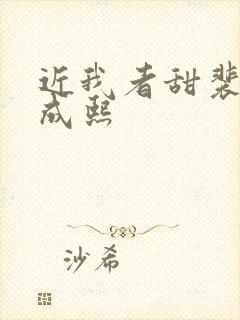 近我者甜裴
成熙
沙希